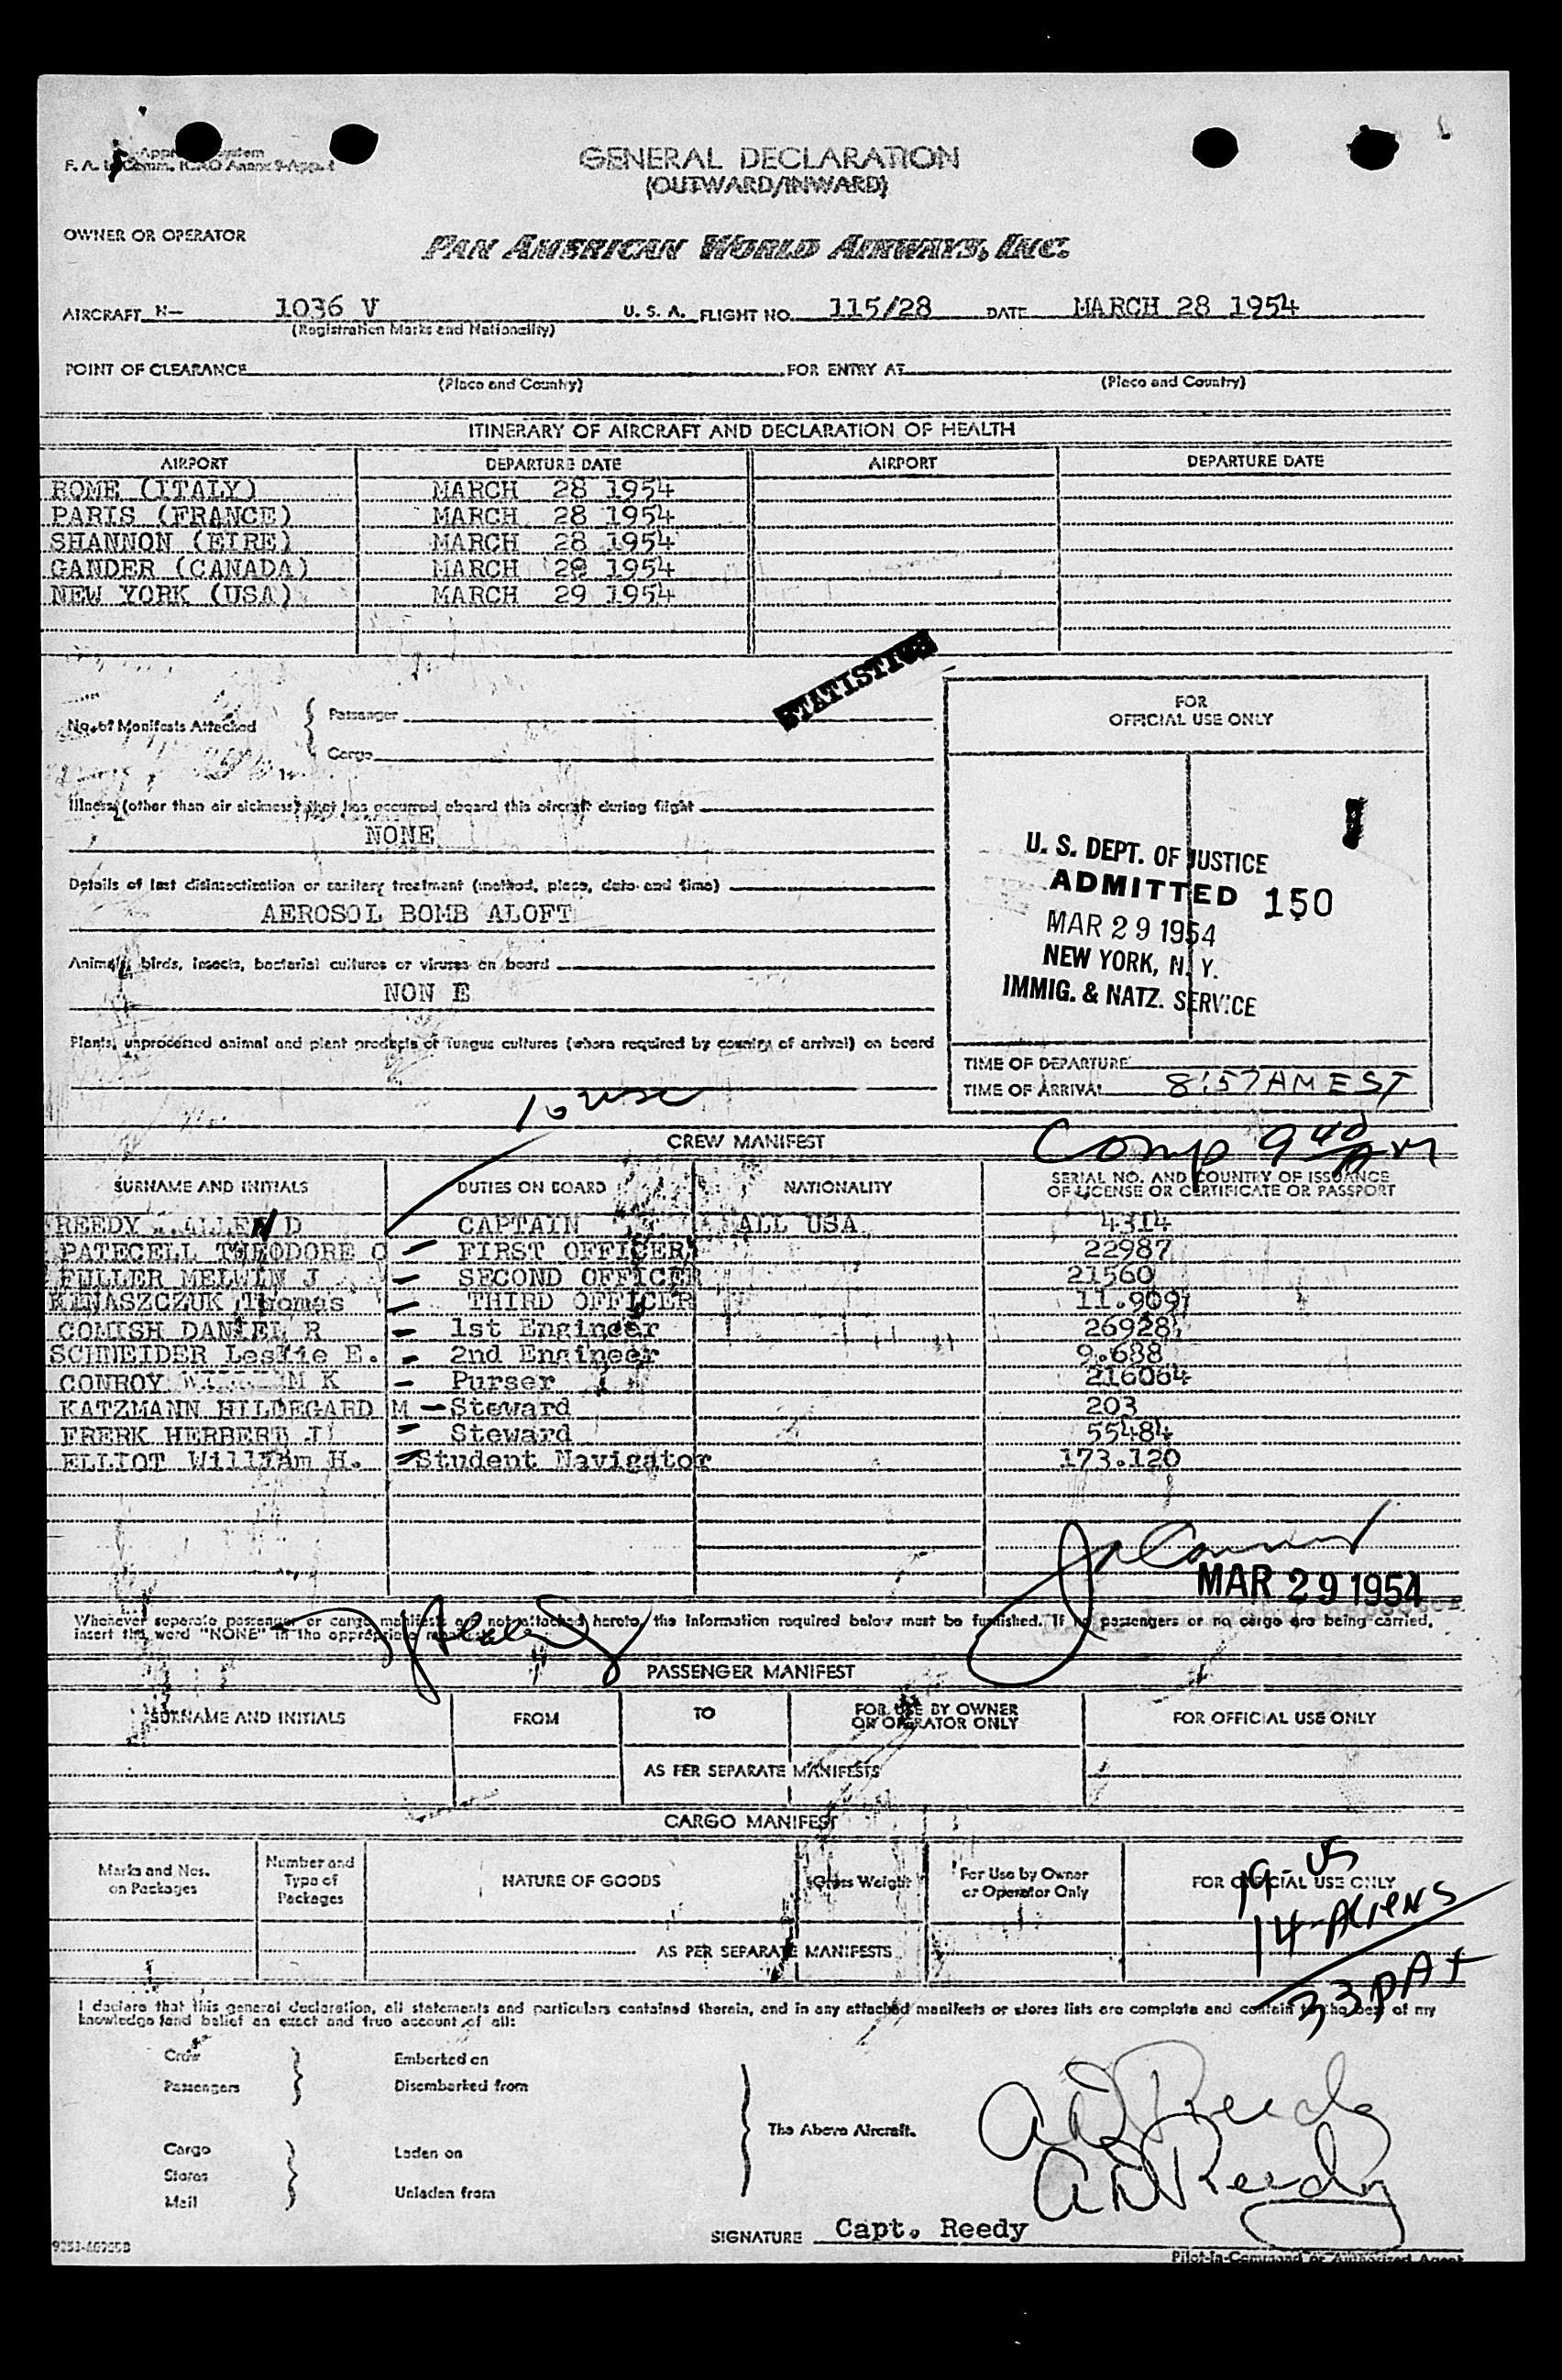 GENERAL DECLARATION
(OUTWARD/INWARD)
OWNER OR OPERATOR
PAN AMERICAN WORLD AIRWAYS, INC.
AIRCRAFT N— 1036 V U. S. A. FLIGHT NO. 115/28 DATE MARCH 28 1954
(Registration Marks and Nationality)
POINT OF CLEARANCE FOR ENTRY AT
(Place and Country) (Place and Country)
ITINERARY OF AIRCRAFT AND DECLARATION OF HEALTH
AIRPORT DEPARTURE DATE AIRPORT DEPARTURE DATE
ROME (ITALY) MARCH 28 1954
PARIS (FRANCE) MARCH 28 1954
SHANNON (EIRE) MARCH 28 1954
GANDER (CANADA) MARCH 1954
NEW YORK (USA) MARCH 29 1954
STATISTICS
No. of Manifests Attached
Passenger
Cargo
FOR
OFFICIAL USE ONLY
Illness (other than air sickness) that has occurred aboard this aircraft during flight
NONE
Details of last disinsectization or sanitary treatment (method, place, date and time)
AEROSOL BOMB ALOFT
Animals, birds, insects, bacterial cultures or viruses on board
NON E
Plants, unprocessed animal and plant products or fungus cultures (where required by country of arrival) on board
U. S. DEPT. OF JUSTICE
ADMITTED 150
MAR 29 1954
NEW YORK, N. Y.
IMMIG. & NATZ. SERVICE
TIME OF DEPARTURE
TIME OF ARRIVAL 8:57 AM EST
Comp 9 40 AM
CREW MANIFEST
SURNAME AND INITIALS DUTIES ON BOARD NATIONALITY SERIAL NO. AND COUNTRY OF ISSUANCE
OF LICENSE OR CERTIFICATE OR PASSPORT
REEDY ALLEN D CAPTAIN ALL USA 4314
PATECELL THEODORE C — FIRST OFFICER 22987
FULLER MELWIN J — SECOND OFFICER 21560
KINASZCZUK Thomas — THIRD OFFICER 11.909
COMISH DANIEL R — 1st Engineer 26928
SCHNEIDER Leslie E. — 2nd Engineer 9.688
CONROY M K — Purser 216064
KATZMANN HILDEGARD M — Steward 203
FRERK HERBERT J — Steward 55484
ELLIOT William H. — Student Navigator 173.120
MAR 29 1954
Whenever separate passenger or cargo manifests are not attached hereto, the information required below must be furnished. If no passengers or no cargo are being carried,
insert the word "NONE" in the appropriate
PASSENGER MANIFEST
SURNAME AND INITIALS FROM TO FOR USE BY OWNER
OR OPERATOR ONLY FOR OFFICIAL USE ONLY
AS PER SEPARATE MANIFESTS
CARGO MANIFEST
Marks and Nos.
on Packages
Number and
Type of
Packages
NATURE OF GOODS
Gross Weight
For Use by Owner
or Operator Only
FOR OFFICIAL USE ONLY
AS PER SEPARATE MANIFESTS
19 - US
14 - Aliens
33 PAX
I declare that this general declaration, all statements and particulars contained therein, and in any attached manifests or stores lists are complete and contain to the best of my
knowledge and belief an exact and true account of all:
Crew Embarked on
Passengers Disembarked from
The Above Aircraft.
Cargo Laden on
Stores
Mail Unladen from
A D Reedy
A D Reedy
SIGNATURE Capt. Reedy
Pilot-in-Command or Authorized Agent